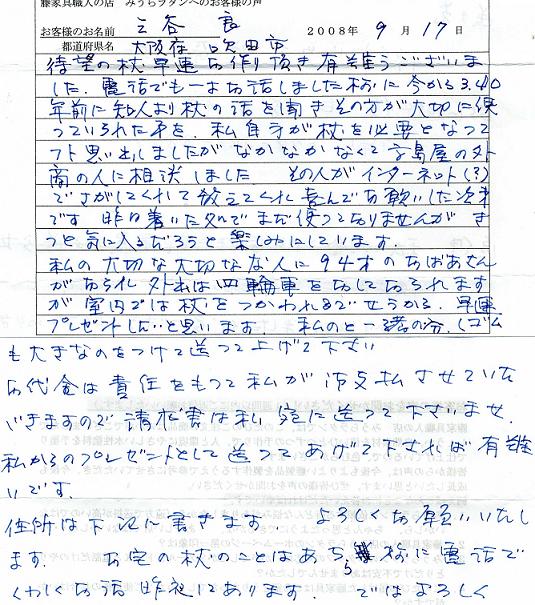 籐家具職人の店　みうらラタンへのお客様の声
お客様のお名前　三谷　2008年9月17日
都道府県名　大阪府 吹田市
待望の杖早速お作り頂き有難うございま
した。電話でも一寸お話しました様に今から3.40
年前に知人より杖の話を聞きその方が大切に使
っていられた事を、私自身が杖を必要となって
フト思い出しましたがなかなかなくて高島屋の外
商の人に相談しました。その人がインターネット(?)
でさがしてくれて教えてくれ喜んでお願いした次第
です 昨日着いた所でまだ使っておりませんが き
っと気に入るだろうと楽しみにしています。
私の大切な大切な友人に94才のおばあさん
がおられ 外出は四輪車をおしておられます
が室内では杖をつかわれるでせうから、早速
プレゼントしたいと思います。 私のと一諸の分、(ゴム
も大きなのをつけて送って上げて下さい
お代金は責任をもって私がお支払させていた
だきますので請求書は私宛に送って下さいませ。
私からのプレゼントとして送ってあげて下されば有難
いです。
住所は下記に書きます　よろしくお願いいたし
ます。 お宅の杖のことはあちら様に電話で
くわしくお話昨夜してあります。 ではよろしく